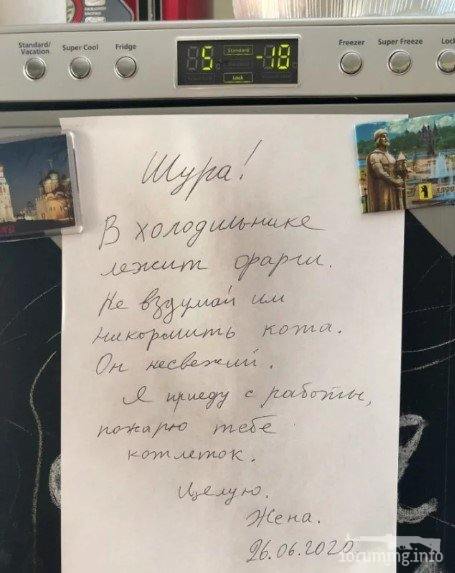 Standard/
Vacation
Super Cool
Fridge
5
Standard
-18
Lock
Freezer
Super Freeze
Lock
Шура!
В холодильнике
лежит фарш.
Не вздумай им
накормить кота.
Он несвежий.
Я приеду с работы,
пожарю тебе
котлеток.
Целую.
Жена.
26.06.2020
forummg.info